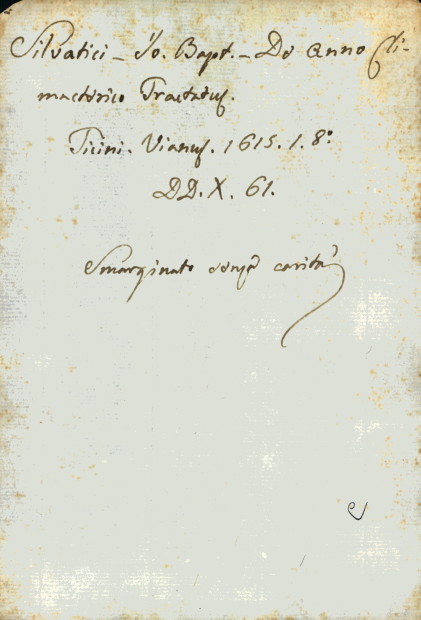 Silvatici - Io. Bapt. - De Anno Cli-
macterico Tractatus.
Ticini. Vianus. 1615. 1. 8.º
DD. X. 61.
Smarginato senza carità